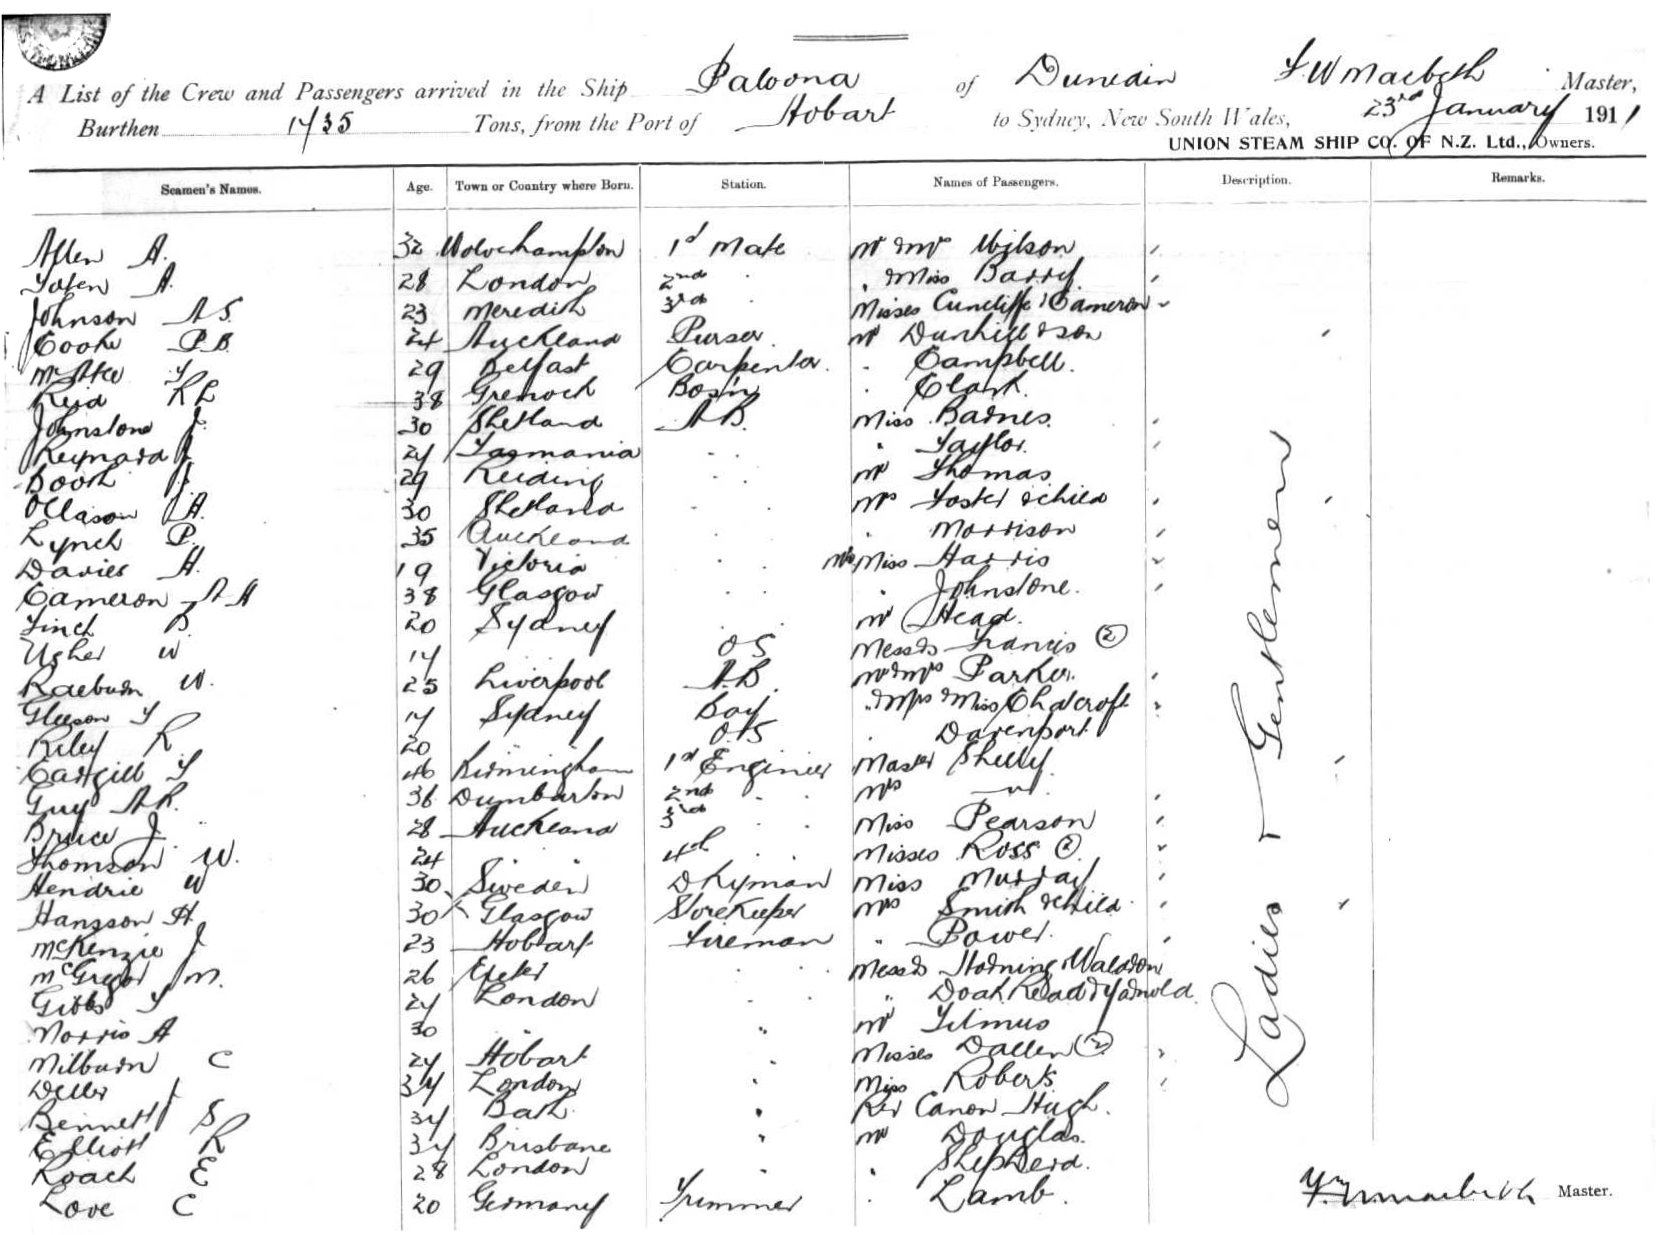 A List of the Crew and Passengers arrived in the Ship Paloona of Dunedin F W Macbeth Master,
Burthen 1735 Tons, from the Port of Hobart to Sydney, New South Wales, 23rd January 1911
UNION STEAM SHIP CO. OF N.Z. Ltd., Owners.
Seamen's Names. Age. Town or Country where Born. Station. Names of Passengers. Description. Remarks.
Allen A. 32 Wolverhampton 1st Mate Mr & Mrs Wilson
A. 28 London 2nd " Miss Barry
Johnson A S. 23 Meredith 3rd Misses Cuncliffe & Cameron
Cooke P.B. 24 Auckland Purser Mr Dunhill & Son
McAtee 29 Belfast Carpenter. Campbell.
Reid R L 38 Grenock Bos'n Clark.
Johnstone J. 30 Shetland A B. Miss Barnes.
Reynard J. 27 Tasmania " Taylor.
Booth J. 29 Reiding Mr Thomas
Ollason A. 30 Shetland Mrs Foster & child
Lynch P. 35 Auckland Morrison
Davies H. 19 Victoria Miss Harris
Cameron A A 38 Glasgow Johnstone.
Finch B. 20 Sydney Mr Head.
Usher W 17 O S Messrs Francis (2)
Raeburn W. 25 Liverpool A.B. Mr & Mrs Parker.
Gleeson T 17 Sydney Boy " Mrs & Miss
Riley R 20 O.S Davenport
Cargill T 46 Birmingham 1st Engineer Master Shelly.
Guy A R. 36 Dumbarton 2nd Mrs "
Bruce J. 28 Auckland 3rd Miss Pearson
Thomson W. 24 " 4th Misses Ross (2)
Hendrie W 30 Sweden Dkyman Miss Murray
Hansson H. 30 Glasgow Storekeeper Mrs Smith & child
McKenzie J 23 Hobart Fireman " Power.
McGregor M. 26 Exeter Messrs Horning Waldron
Gibbs T 27 London " Doak Read & Yarnold
Morris A 30 " Mr Titmus
Milburn C 27 Hobart Misses Dallen (2)
Deller J 37 London Miss Roberts
Bennett S 37 Bath Rev Canon Hugh.
Elliott R 37 Brisbane Mr Douglas.
Roach E 28 London Shepherd.
Love C 20 Germany Trimmer Lamb.
Ladies & Gentlemen
F W Macbeth Master.